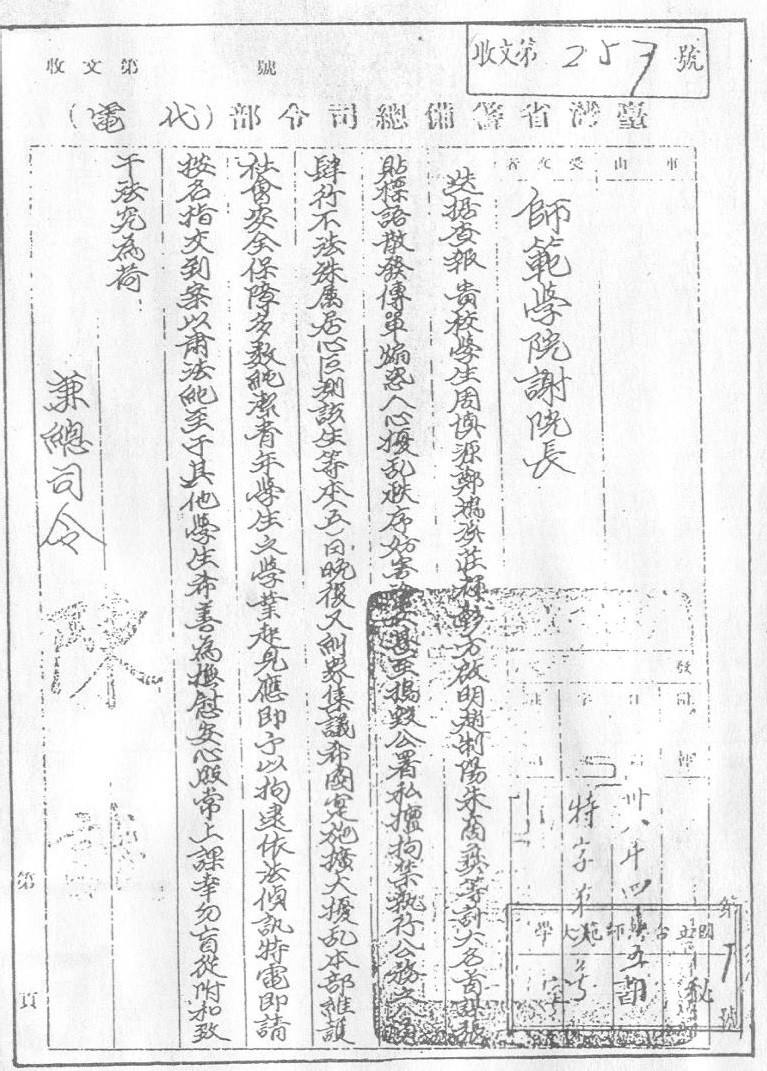 收文第257號
收文第 號
臺灣省警備總司令部（代電）
事由
受文者
師範學院謝院長
迭據查報貴校學生周慎源鄭鴻溪莊輝彰方啟明趙制陽朱商彝等計六名首謀張
貼標語散發傳單煽惑人心擾乱秩序妨害治安甚至搗毀公署私擅拘禁執行公務之人員
肆行不法殊屬居心叵測該生等本（五）日晚復又糾眾集議希圖實施擴大擾乱本部維護
社會安全保障多數純潔青年學生之學業起見應即予以拘逮依法偵訊特電即請
按名指交到案以肅法紀至于其他學生希善為撫慰安心照常上課幸勿盲從附和致
干法究為荷
兼總司令陳
附件
卅八年四月五日
特字第 號
國立台灣師範大學
秘
第 號
第 頁